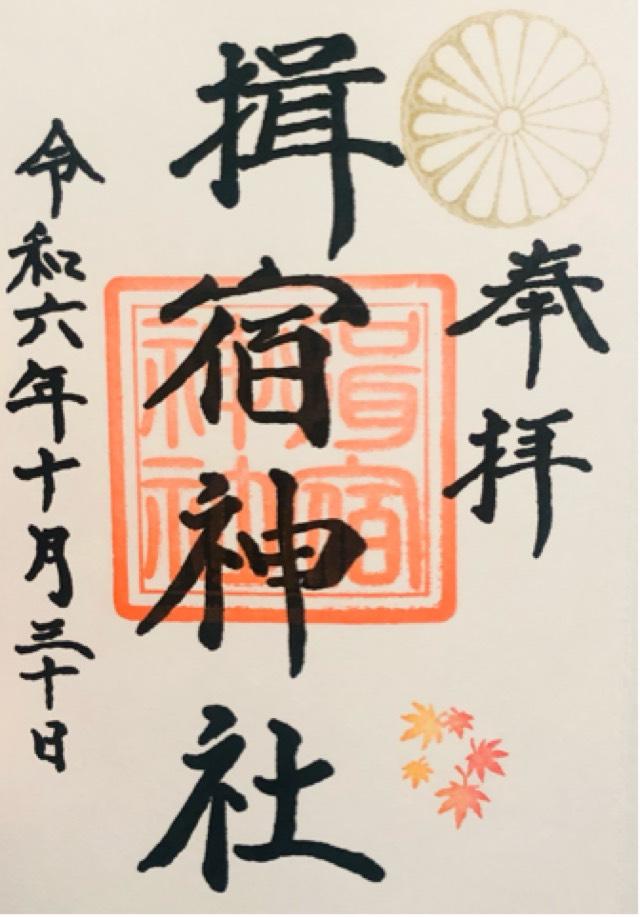 奉拝
揖宿神社
揖宿
神社
令和六年十月三十日